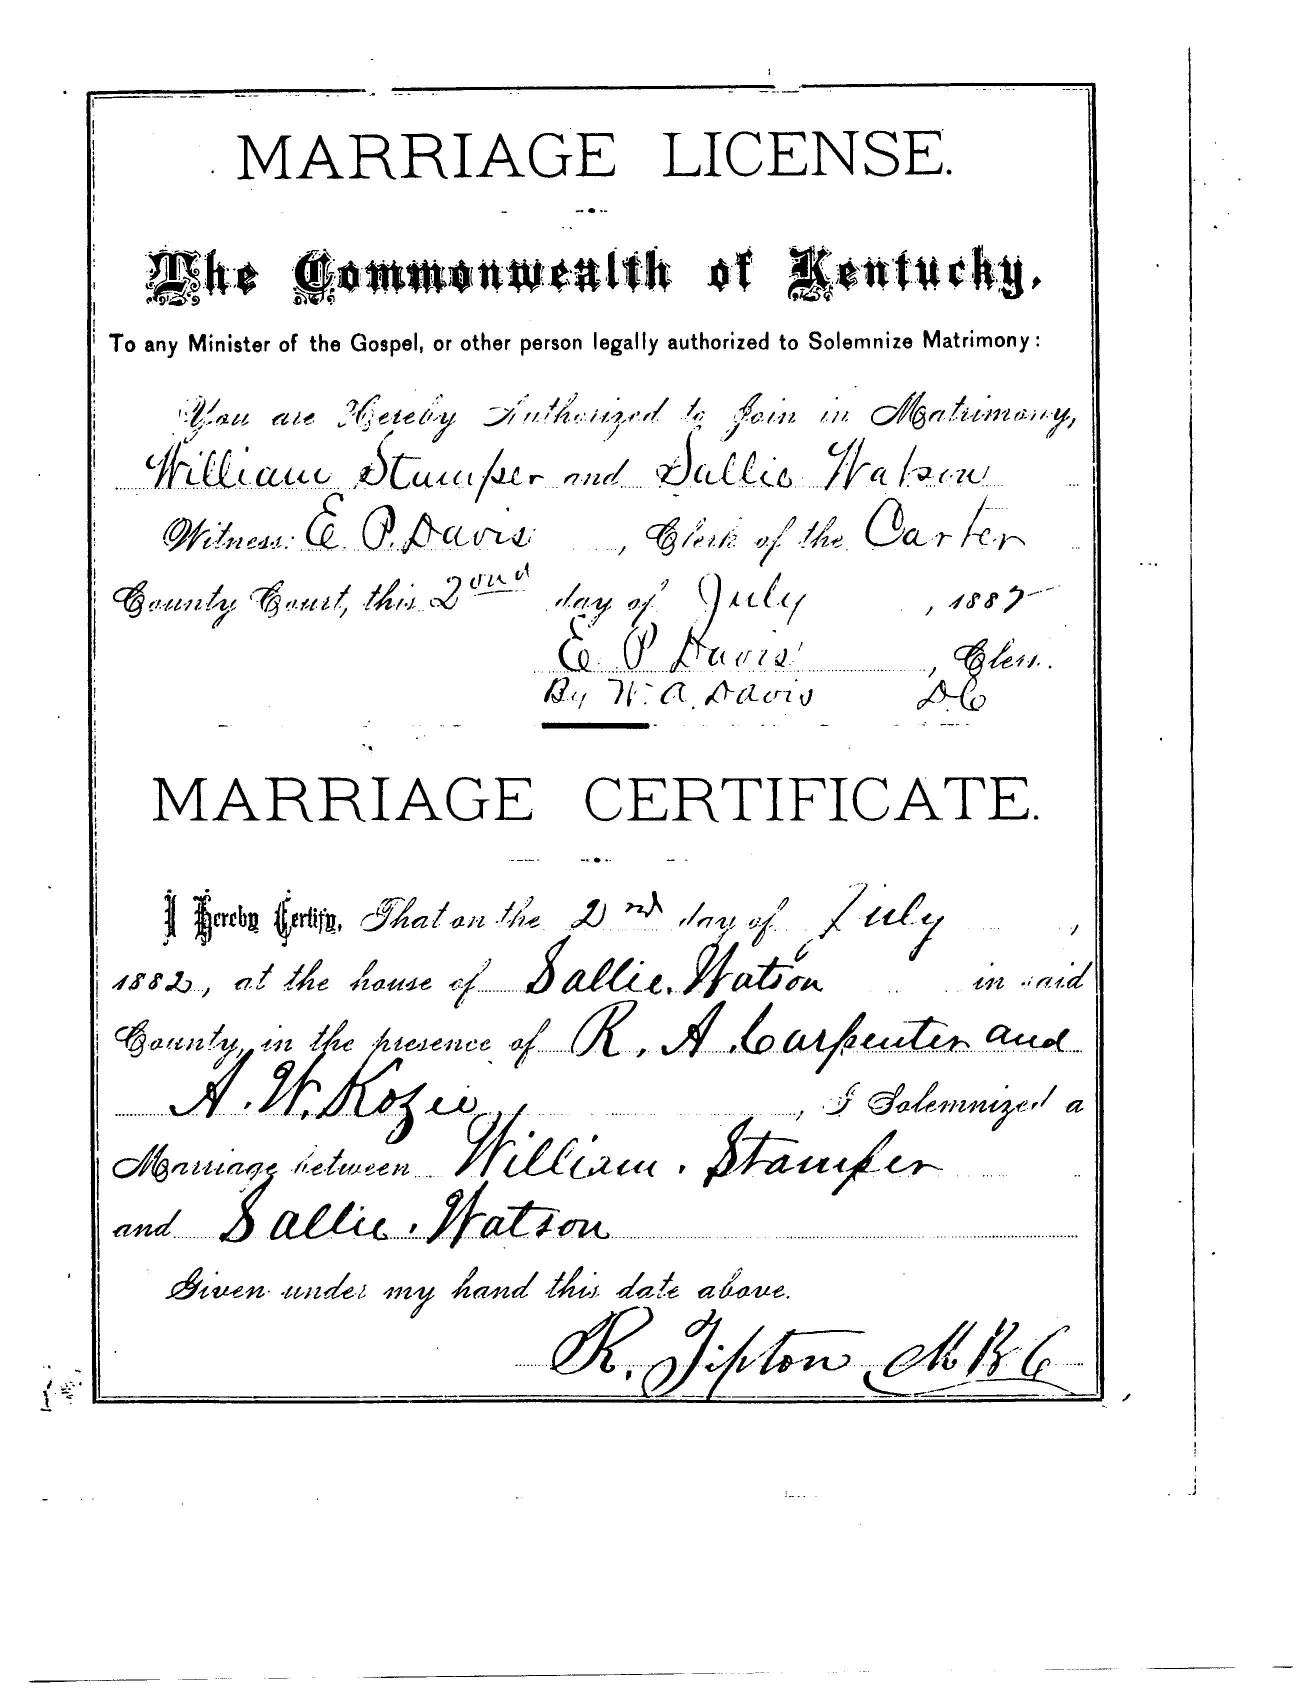 MARRIAGE LICENSE.
The Commonwealth of Kentucky,
To any Minister of the Gospel, or other person legally authorized to Solemnize Matrimony:
You are Hereby Authorized to Join in Matrimony,
William Stamper and Sallie Watson
Witness: E. P. Davis, Clerk of the Carter
County Court, this 2ond day of July, 1882
E. P Davis, Clerk.
By W. A. Davis DC
MARRIAGE CERTIFICATE.
I Hereby Certify, That on the 2nd day of July,
1882, at the house of Sallie. Watson in said
County, in the presence of R. A. Carpenter and
A. W. Kozee, I Solemnized a
Marriage between William. Stamper
and Sallie. Watson
Given under my hand this date above.
R. Tipton